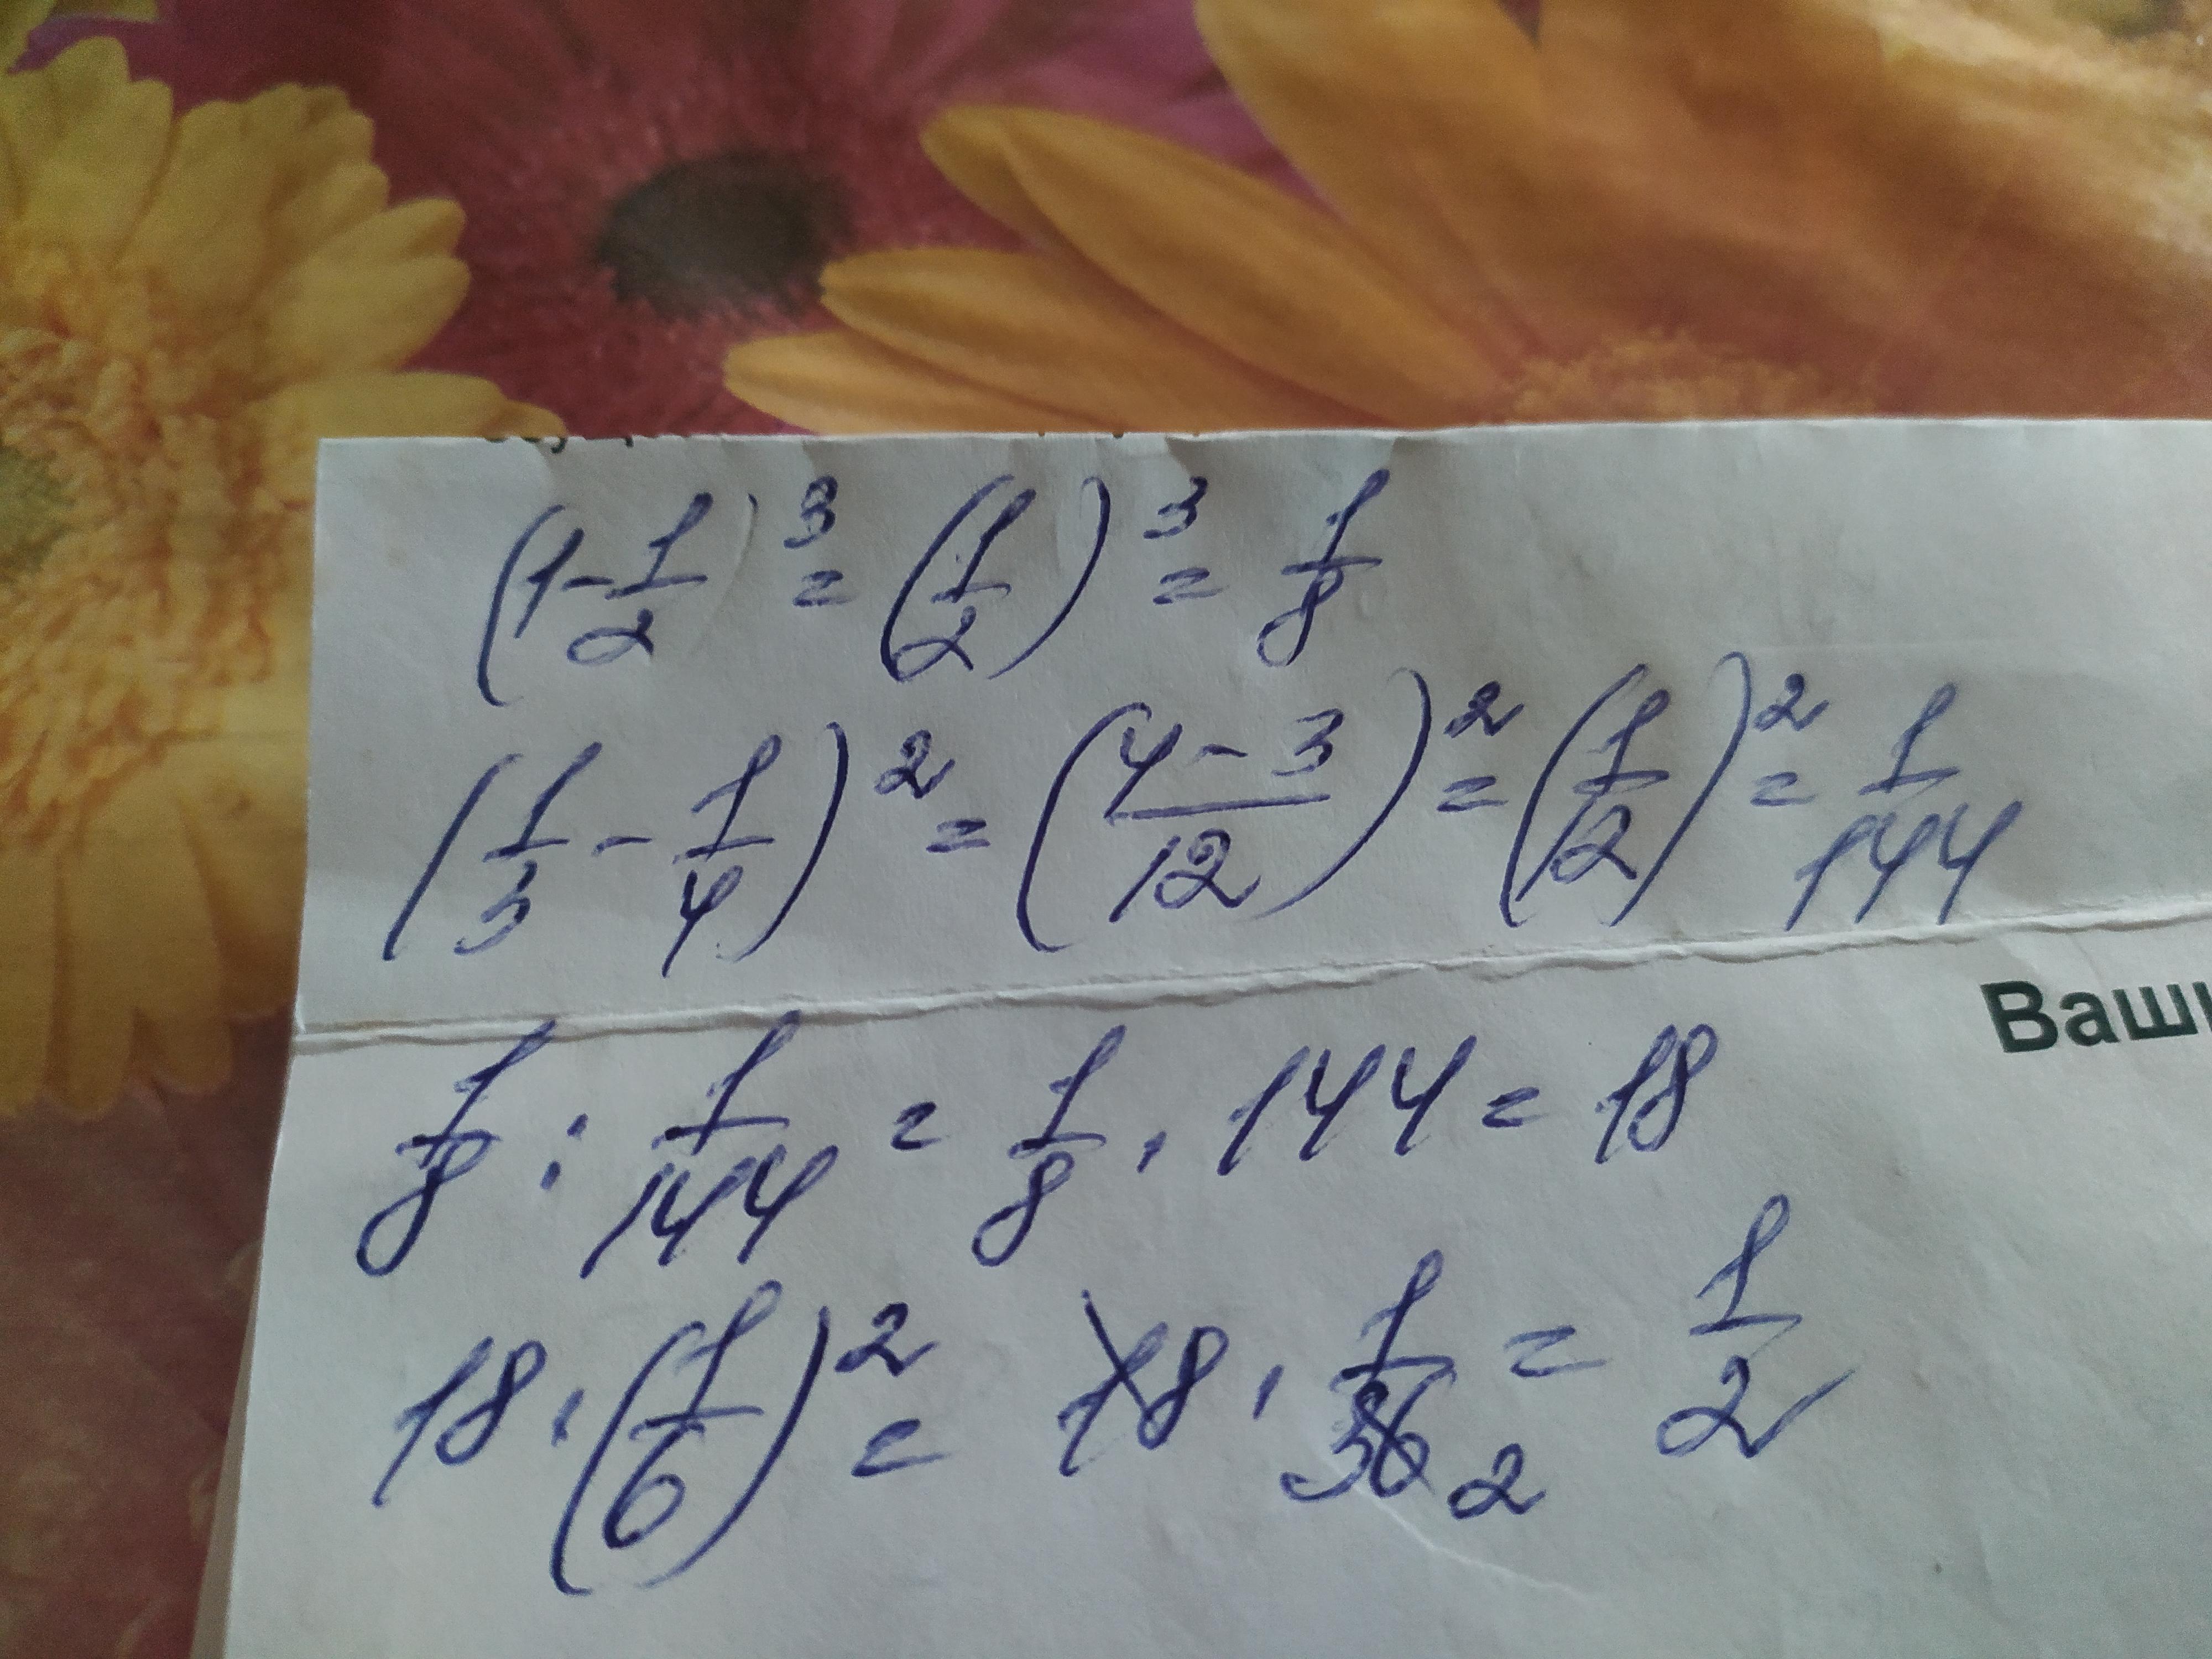 (1-1/2)³=(1/2)³=1/8
(1/3-1/4)²=(4-3/12)²=(1/12)²=1/144
Ваши
1/8:1/144=1/8·144=18
18·(1/6)²=18·1/36 2=1/2